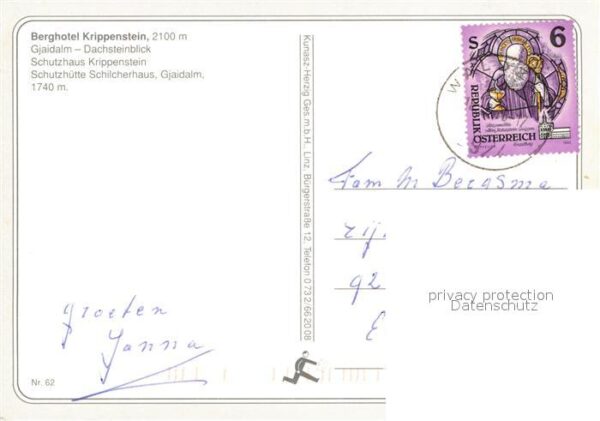 Berghotel Krippenstein, 2100 m
Gjaidalm – Dachsteinblick
Schutzhaus Krippenstein
Schutzhütte Schilcherhaus, Gjaidalm,
1740 m.
Kunasz-Herzig Ges.m.b.H., Linz, Bürgerstraße 12, Telefon 0 73 2/66 20 08
S 6
REPUBLIK
ÖSTERREICH
Fam M Bergsma
92
E
privacy protection
Datenschutz
groeten
Janna
Nr. 62